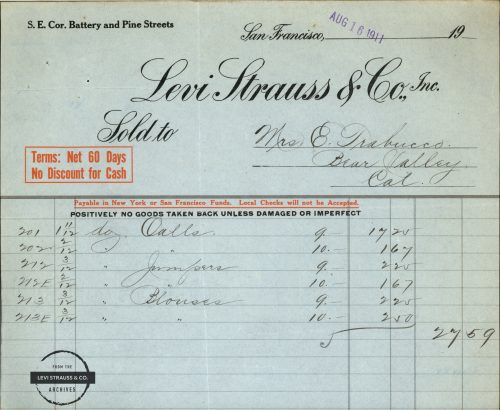 S. E. Cor. Battery and Pine Streets
San Francisco, AUG 16 1911 19
Levi Strauss & Co., Inc.
Sold to Mrs. E. Trabucco.
Bear Valley.
Cal.
Terms: Net 60 Days
No Discount for Cash
Payable in New York or San Francisco Funds. Local Checks will not be Accepted.
POSITIVELY NO GOODS TAKEN BACK UNLESS DAMAGED OR IMPERFECT
201 1 11/12 doz Oalls 9.- 17 25
202 2/12 " " 10.- 1 67
212 3/12 " Jumpers 9.- 2 25
212E 2/12 " " 10.- 1 67
213 3/12 " Blouses 9.- 2 25
213E 3/12 " " 10.- 2 50
27 59
FROM THE
LEVI STRAUSS & CO.
ARCHIVES